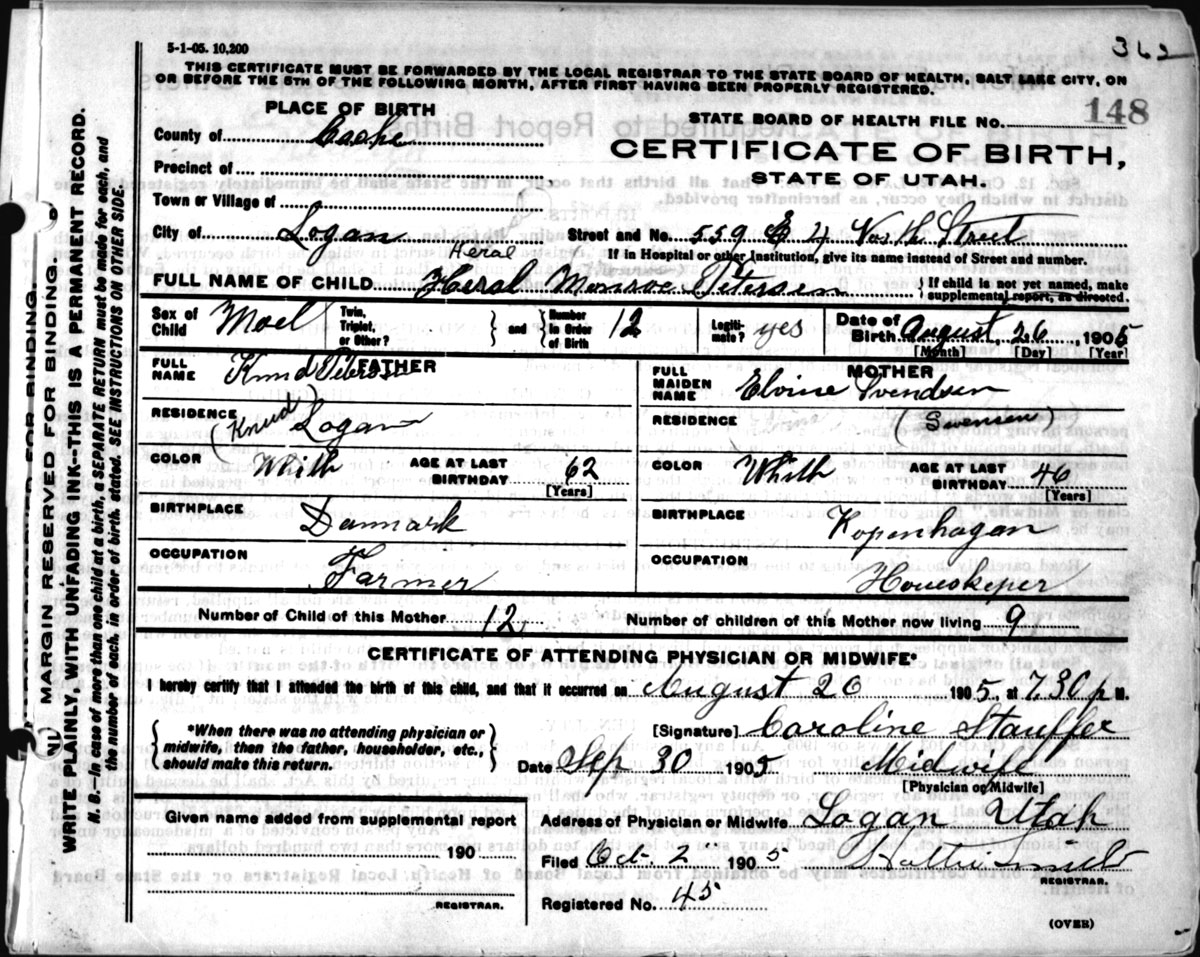 362
5-1-05. 10,200
THIS CERTIFICATE MUST BE FORWARDED BY THE LOCAL REGISTRAR TO THE STATE BOARD OF HEALTH, SALT LAKE CITY, ON
OR BEFORE THE 5TH OF THE FOLLOWING MONTH, AFTER FIRST HAVING BEEN PROPERLY REGISTERED.
PLACE OF BIRTH
STATE BOARD OF HEALTH FILE No. 148
County of Cache
CERTIFICATE OF BIRTH,
Precinct of
STATE OF UTAH.
Town or Village of
City of Logan Street and No. 559 E 4 North Street
Heral
If in Hospital or other Institution, give its name instead of Street and number.
FULL NAME OF CHILD Heral Monroe Petersen { If child is not yet named, make
supplemental report, as directed.
Sex of Child Mael Twin, Triplet, or Other? } and { Number in Order of Birth 12 Legiti- mate? yes Date of Birth August 26, 1905
[Month] [Day] [Year]
FATHER
FULL NAME Knud
MOTHER
FULL MAIDEN NAME Svendsen
RESIDENCE (Knud) Logan
RESIDENCE (Swensen)
COLOR Whith AGE AT LAST BIRTHDAY 62 [Years]
COLOR Whith AGE AT LAST BIRTHDAY 46 [Years]
BIRTHPLACE Danmark
BIRTHPLACE Kopenhagan
OCCUPATION Farmer
OCCUPATION Houeskeper
Number of Child of this Mother 12, Number of children of this Mother now living 9
CERTIFICATE OF ATTENDING PHYSICIAN OR MIDWIFE*
I hereby certify that I attended the birth of this child, and that it occurred on August 26 1905, at 7.30 p M.
{ *When there was no attending physician or
midwife, then the father, householder, etc.,
should make this return. }
[Signature] Caroline Stauffer
Date Sep 30 1905 Midwife
[Physician or Midwife]
Given name added from supplemental report
190
REGISTRAR.
Address of Physician or Midwife Logan Utah
Filed Oct. 2 1905 Hattie
REGISTRAR.
Registered No. 45
(OVER)
MARGIN RESERVED FOR BINDING.
WRITE PLAINLY, WITH UNFADING INK--THIS IS A PERMANENT RECORD.
N. B.--In case of more than one child at a birth, a SEPARATE RETURN must be made for each, and
the number of each, in order of birth, stated. SEE INSTRUCTIONS ON OTHER SIDE.